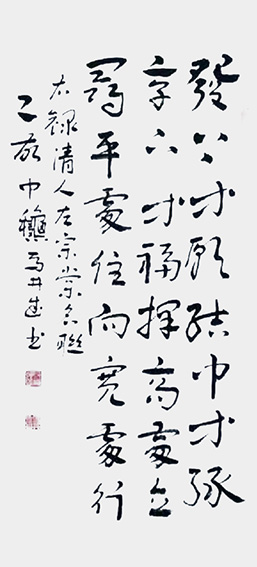 發上等願結中等緣
享下等福擇高處立
尋平處住向寬處行
右錄清人左宗棠名聯
乙 中龝馬井 书